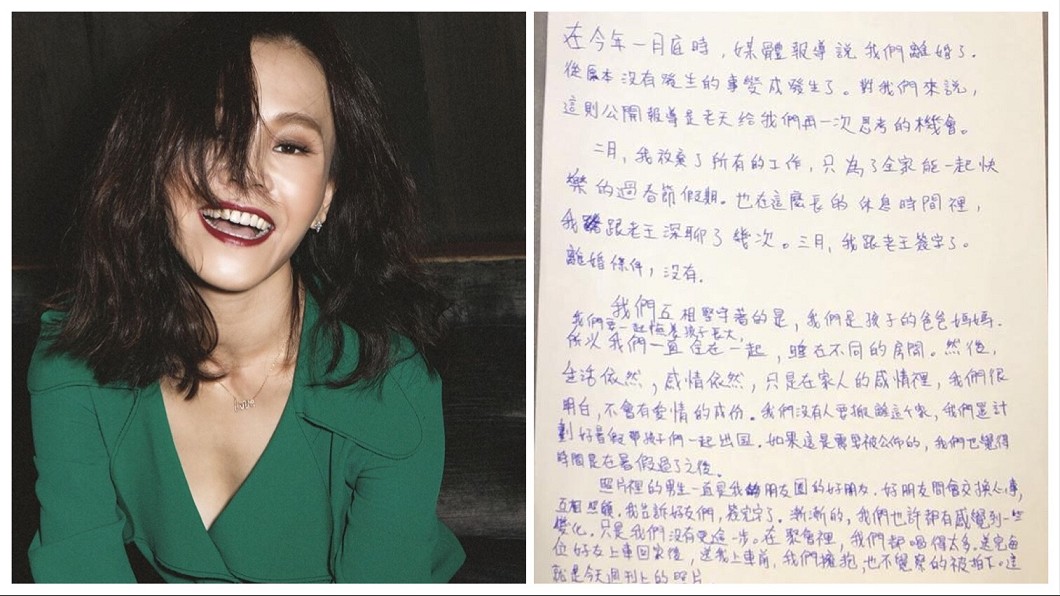 在今年一月底時，媒體報導說我們離婚了．
從原本沒有發生的事變成發生了。對我們來說，
這則公開報導是老天給我們再一次思考的機會。
二月，我放棄了所有的工作，只為了全家能一起快
樂的過春節假期。也在這麼長的休息時間裡，
我跟老王深聊了幾次。三月，我跟老王簽字了。
離婚條件，沒有．
我們互相堅守著的是，我們是孩子的爸爸媽媽．
我們要一起陪著孩子長大，
所以我們一直住在一起，睡在不同的房間。然後，
生活依然，感情依然，只是在家人的感情裡，我們很
明白，不會有愛情的成份。我們沒有人要搬離這個家，我們還計
劃好暑假帶孩子們一起出國．如果這是需要被公佈的，我們也覺得
時間是在暑假過了之後。
照片裡的男生一直是我朋友圈的好朋友．好朋友間會交換心事，
互相照顧．我告訴好友們，簽完字了．漸漸的，我們也許都有感覺到一些
變化．只是我們沒有更進一步。在聚會裡，我們都喝得太多．送完每
位好友上車回家後，送我上車前，我們擁抱，也不覺察的被拍下．這
就是今天週刊上的照片